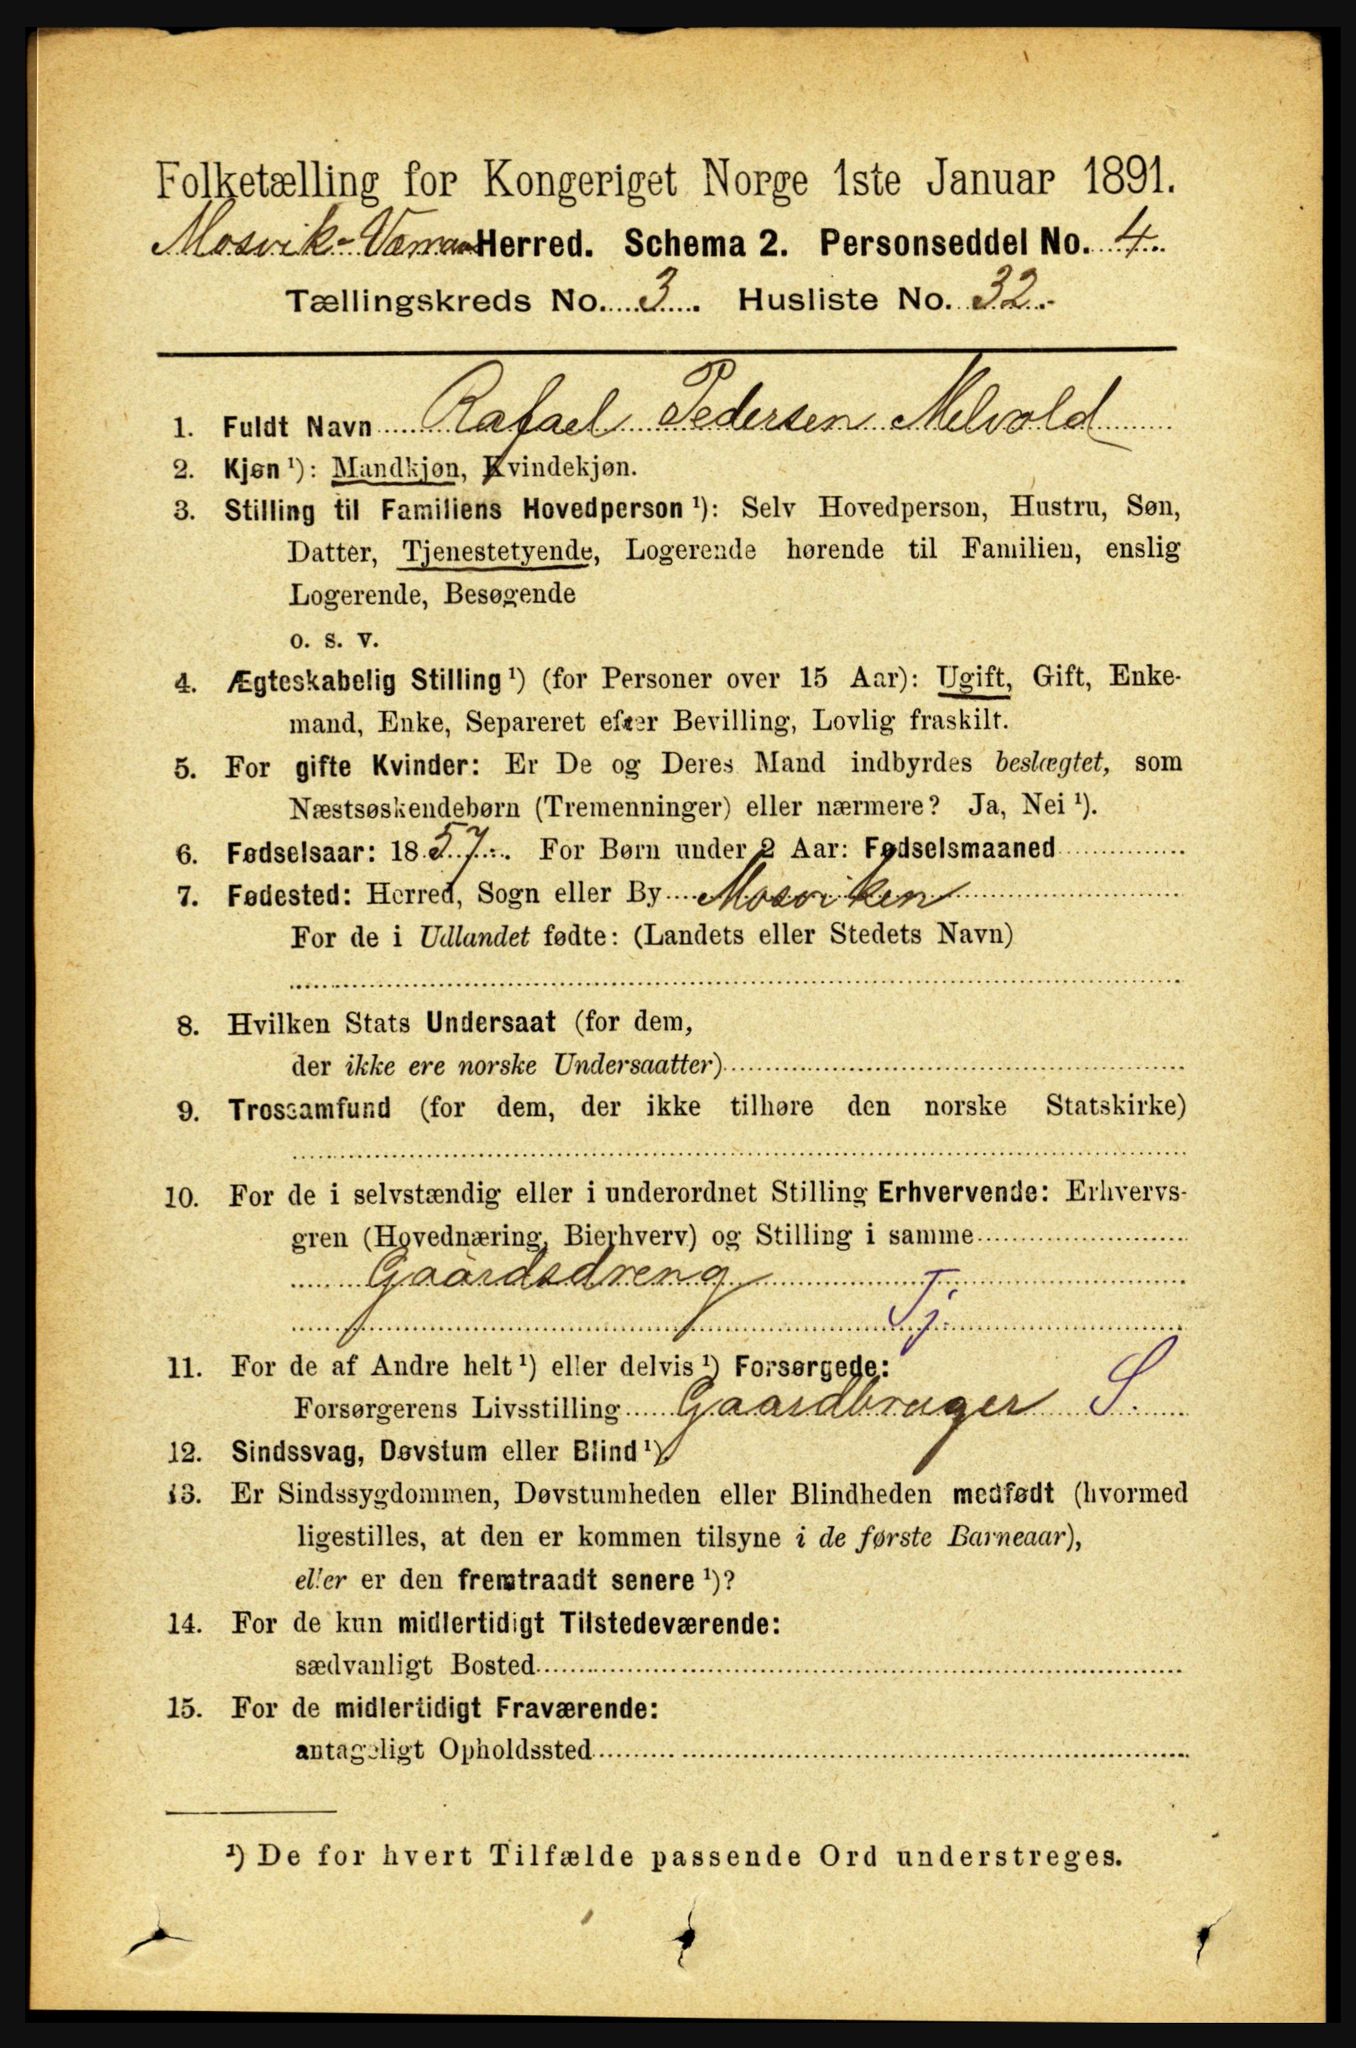 Folketælling for Kongeriget Norge 1ste Januar 1891.
Mosvik-Værran Herred. Schema 2. Personseddel No. 4.
Tællingskreds No. 3. Husliste No. 32.
1. Fuldt Navn Rafael Pedersen Melvold
2. Kjøn ¹): Mandkjøn, Kvindekjøn.
3. Stilling til Familiens Hovedperson ¹): Selv Hovedperson, Hustru, Søn,
Datter, Tjenestetyende, Logerende hørende til Familien, enslig
Logerende, Besøgende
o. s. v.
4. Ægteskabelig Stilling ¹) (for Personer over 15 Aar): Ugift, Gift, Enke-
mand, Enke, Separeret efter Bevilling, Lovlig fraskilt.
5. For gifte Kvinder: Er De og Deres Mand indbyrdes beslægtet, som
Næstsøskendebørn (Tremenninger) eller nærmere? Ja, Nei ¹).
6. Fødselsaar: 1857. For Børn under 2 Aar: Fødselsmaaned
7. Fødested: Herred, Sogn eller By Mosviken
For de i Udlandet fødte: (Landets eller Stedets Navn)
8. Hvilken Stats Undersaat (for dem,
der ikke ere norske Undersaatter)
9. Trossamfund (for dem, der ikke tilhøre den norske Statskirke)
10. For de i selvstændig eller i underordnet Stilling Erhvervende: Erhvervs-
gren (Hovednæring, Bierhverv) og Stilling i samme
Gaardsdreng
Tj.
11. For de af Andre helt ¹) eller delvis ¹) Forsørgede:
Forsørgerens Livsstilling Gaardbruger S.
12. Sindssvag, Døvstum eller Blind ¹).
13. Er Sindssygdommen, Døvstumheden eller Blindheden medfødt (hvormed
ligestilles, at den er kommen tilsyne i de første Barneaar),
eller er den fremtraadt senere ¹)?
14. For de kun midlertidigt Tilstedeværende:
sædvanligt Bosted
15. For de midlertidigt Fraværende:
antageligt Opholdssted
¹) De for hvert Tilfælde passende Ord understreges.